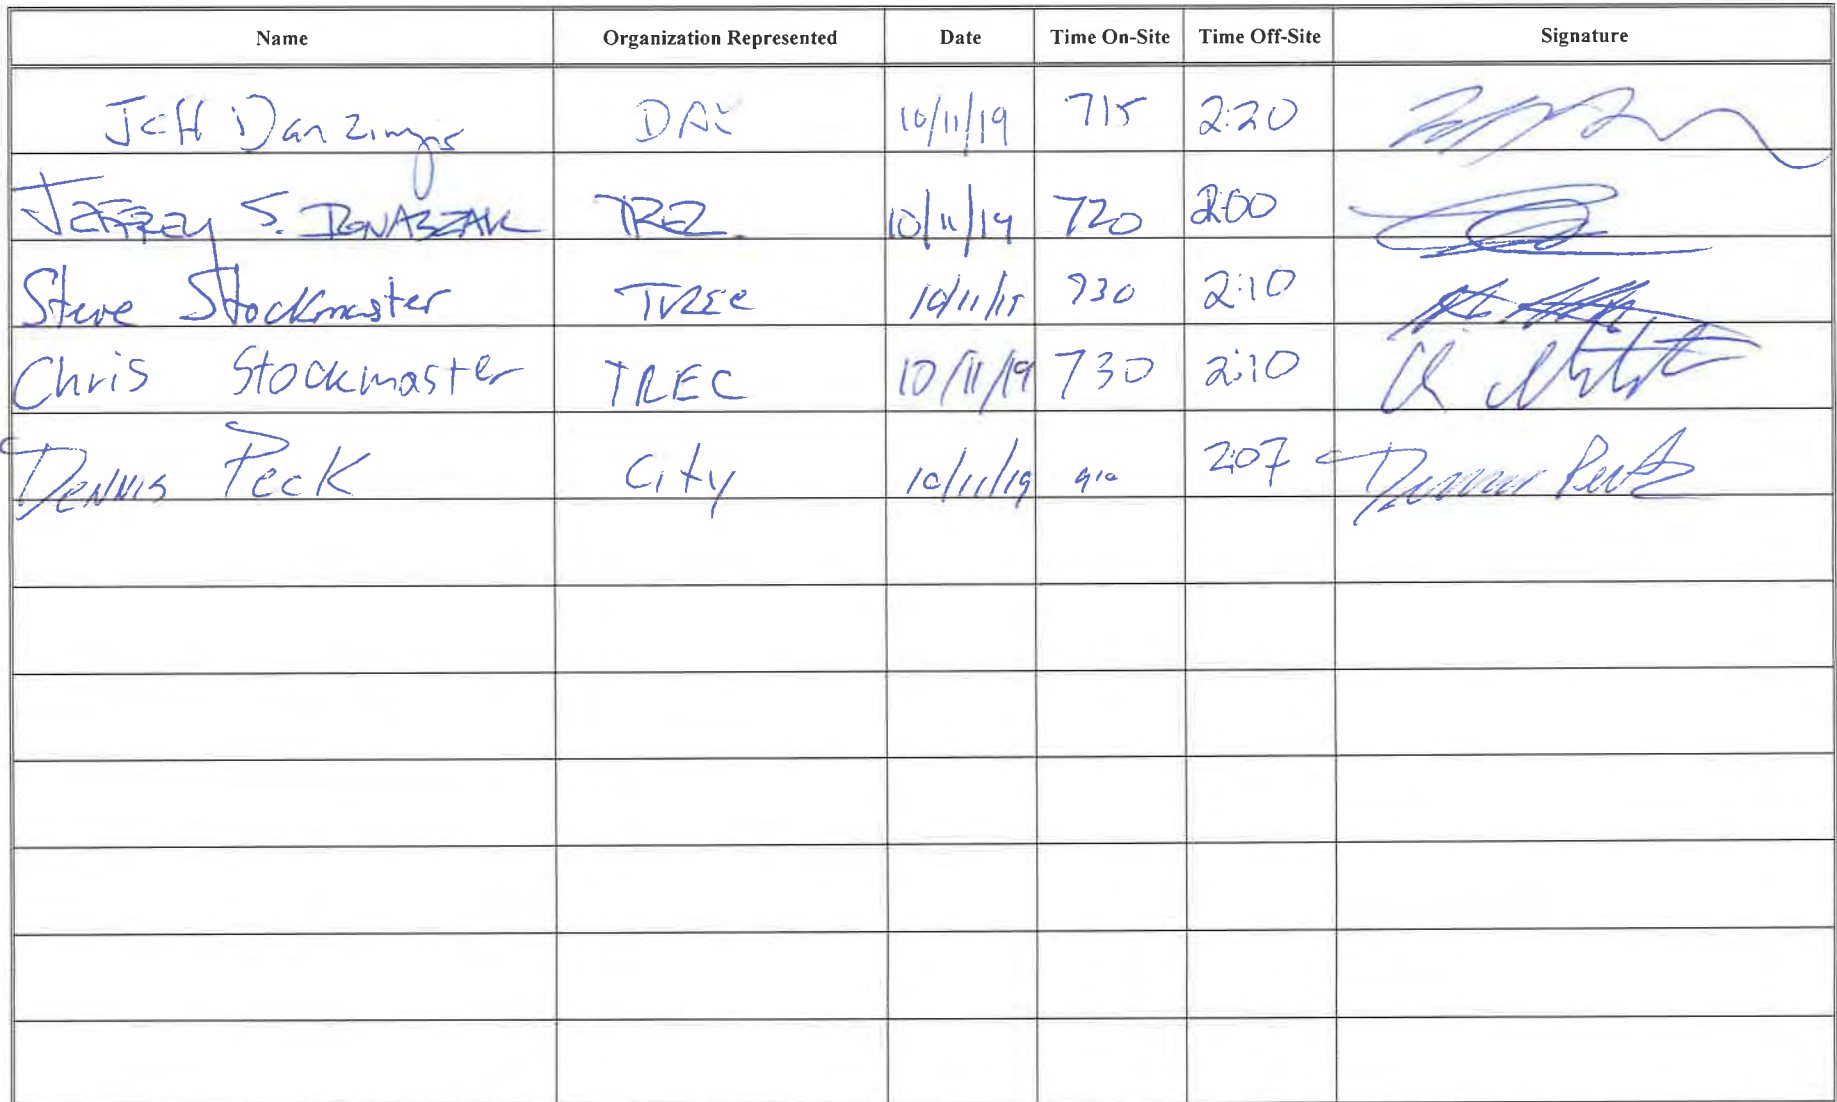 Name Organization Represented Date Time On-Site Time Off-Site Signature
Jeff Danzinger 10/11/19 715 2:20
Jeffrey S. 10/11/19 720 2:00
Steve Stockmaster TREC 10/11/19 730 2:10
Chris Stockmaster TREC 10/11/19 730 2:10
Dennis Peck City 10/11/19 910 2:07